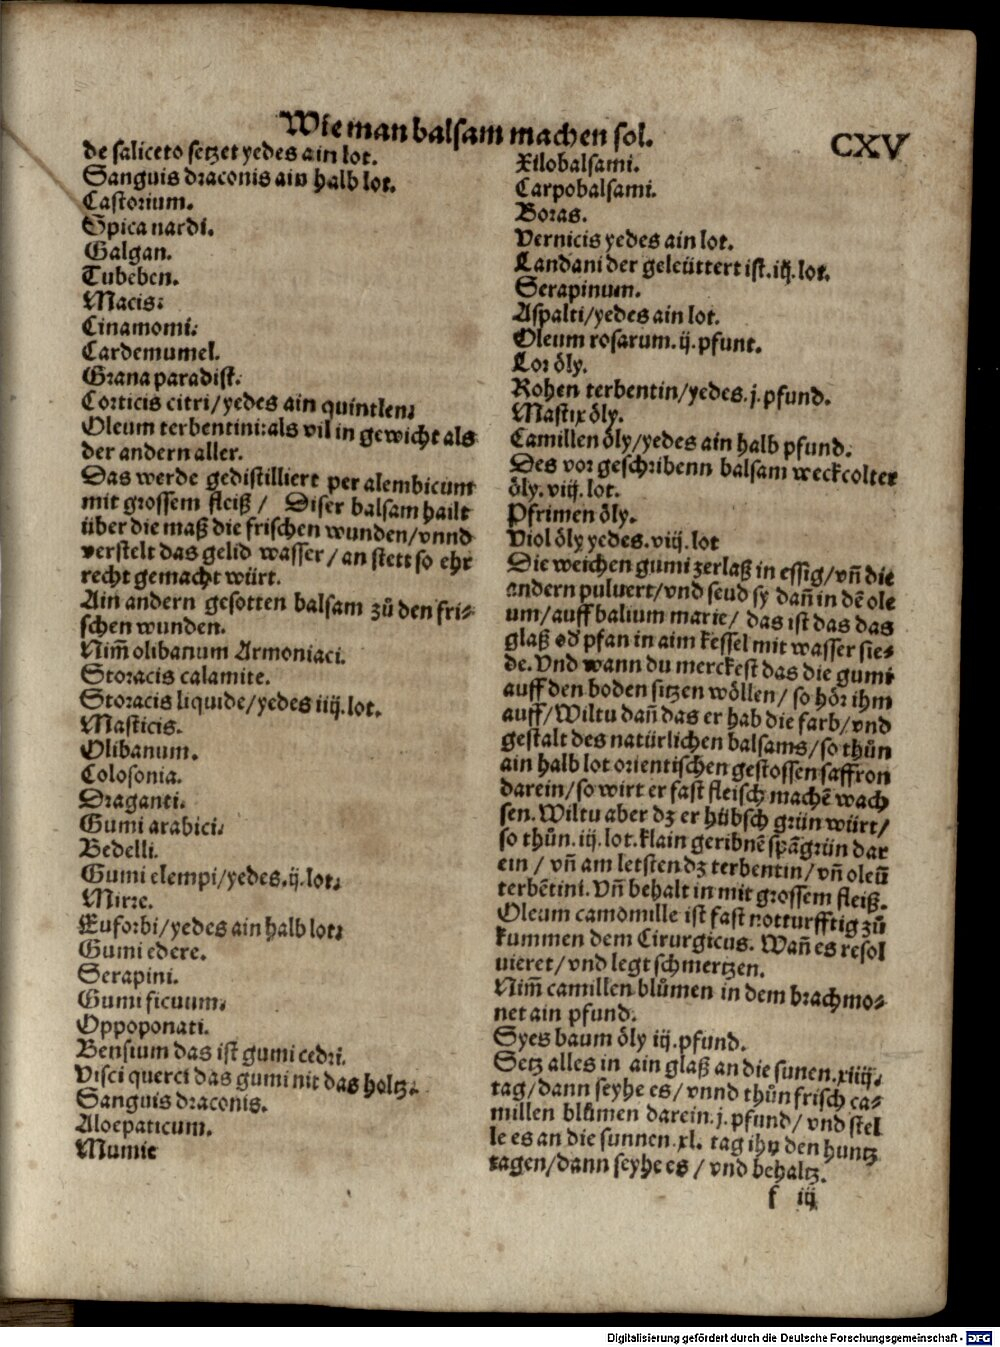 Wie man balsam machen sol.
CXV
de saliceto setzet yedes ain lot.
Sanguis draconis ain halb lot.
Castorium.
Spica nardi.
Galgan.
Tubeben.
Macis.
Cinamomi.
Cardemumel.
Grana paradisi.
Corticis citri/yedes ain quintlen.
Oleum terbentini:als vil in gewicht als
der andern aller.
Das werde gedistilliert per alembicum
mit grossem fleiß / Diser balsam hailt
über die maß die frischen wunden/vnnd
verstelt das gelid wasser/an stett so ehr
recht gemacht würt.
Ain andern gesotten balsam zů den fri⸗
schen wunden.
Nim̃ olibanum Armoniaci.
Storacis calamite.
Storacis liquide/yedes iiij.lot.
Masticis.
Olibanum.
Colofonia.
Draganti.
Gumi arabici.
Bedelli.
Gumi elempi/yedes.ij.lot.
Mirre.
Euforbi/yedes ain halb lot.
Gumi edere.
Serapini.
Gumi ficuum.
Oppoponati.
Bensium das ist gumi cedri.
Visci querci das gumi nit das holtz.
Sanguis draconis.
Aloepaticum.
Mumie
Xilobalsami.
Carpobalsami.
Boras.
Vernicis yedes ain lot.
Landani der geleüttert ist.iij.lot.
Serapinum.
Aspalti/yedes ain lot.
Oleum rosarum.ij.pfunt.
Lor öly.
Rohen terbentin/yedes.j.pfund.
Mastix öly.
Camillen öly/yedes ain halb pfund.
Des vor geschribenn balsam weckcolter
öly.viij.lot.
Pfrimen öly.
Viol öly yedes.viij.lot
Die weichen gumi zerlaß in essig/vñ die
andern puluert/vnd seud sy dañ in dẽ ole
um/auff balium marie/ das ist das das
glaß od̕ pfan in aim kessel mit wasser sie⸗
de.Vnd wann du merckest das die gumi
auff den boden sitzen wöllen/ so hör ihm
auff/Wiltu dañ das er hab die farb/vnd
gestalt des natürlichen balsams/so thůn
ain halb lot orientischen gestossen saffron
darein/so wirt er fast fleisch machẽ wach
sen.Wiltu aber dz er hübsch grün würt/
so thůn.iij.lot.klain geribnẽ spãgrün dar
ein / vñ am letsten dz terbentin/vñ oleũ
terbẽtini.Vñ behalt in mit grossem fleiß.
Oleum camomille ist fast notturfftig zů
kummen dem Cirurgicus. Wañ es resol
uieret/vnd legt schmertzen.
Nim̃ camillen blůmen in dem brachmo⸗
net ain pfund.
Syes baum öly iij.pfund.
Setz alles in ain glaß an die sunen.xiiij.
tag/dann seyhe es/vnnd thůn frisch ca⸗
millen blůmen darein.j.pfund/vnd stel
le es an die sunnen.xl. tag ihn den huntz
tagen/dann seyhe es/vnd behaltz.
f iij
Digitalisierung gefördert durch die Deutsche Forschungsgemeinschaft - DFG